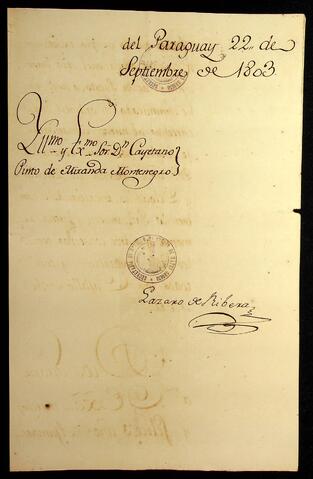 del Paraguay 22 de
Septiembre de 1803
Yll.mo y Ex.mo Sor. D.n Cayetano
Pinto de Miranda Montenegro
Lazaro de Ribera